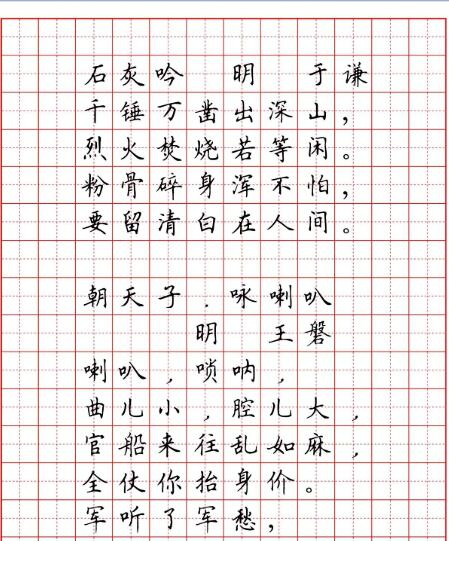 石灰吟 明 于谦
千锤万凿出深山，
烈火焚烧若等闲。
粉骨碎身浑不怕，
要留清白在人间。
朝天子．咏喇叭
明 王磐
喇叭，唢呐，
曲儿小，腔儿大，
官船来往乱如麻，
全仗你抬身价。
军听了军愁，